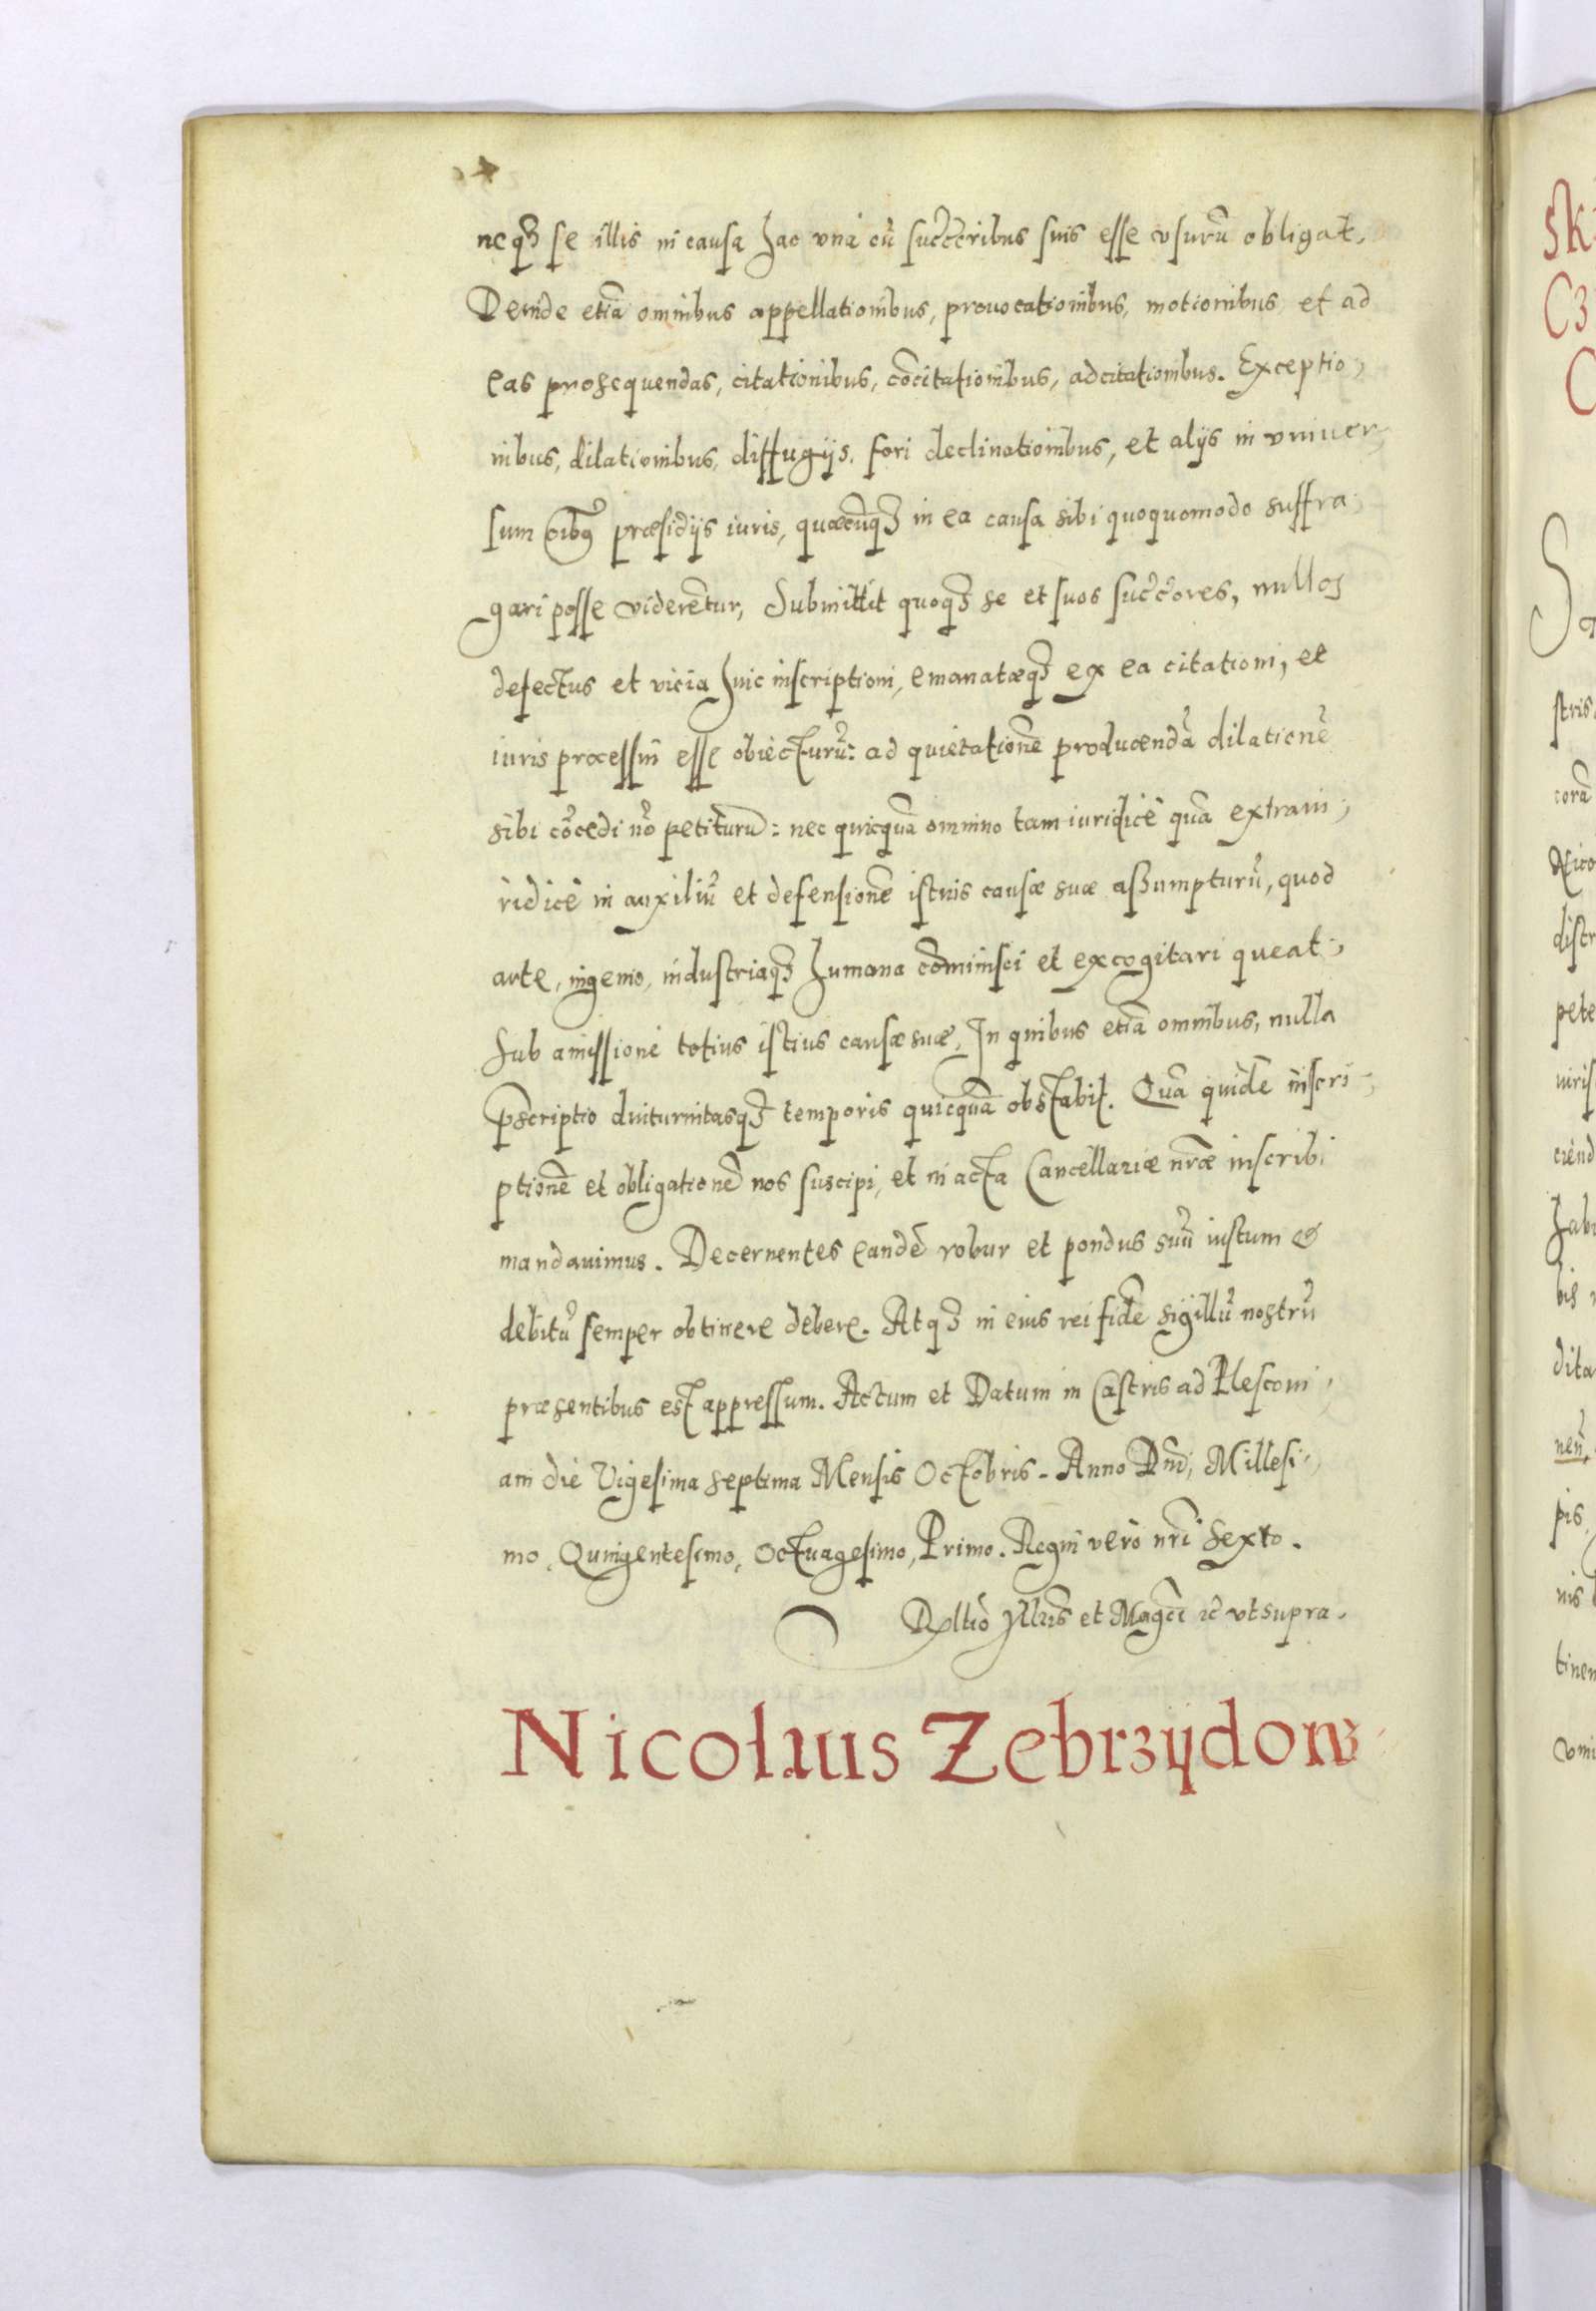 neqȝ se illis in causa hac vna cũ succ̃oribus suis esse vsurũ obligat.
Deinde etiã omnibus appellationibus, prouocationibus, motionibus et ad
eas prosequendas, citationibus, cõcitationibus, adcitationibus. Exceptio,
nibus, dilationibus, diffugijs. fori declinationibus, et alijs in vniuer,
sum oĩbꝰ præsidijs iuris, quæcũqȝ in ea causa sibi quoquomodo suffra,
gari posse viderẽtur, Submittit quoqȝ se et suos succ̃ores, nullos
defectus et vicia huic inscriptioni, emanatæqȝ ex ea citationi, et
iuris processui esse obiecturũ: ad quietationẽ producendã dilationẽ
sibi cõcedi nõ petiturũ: nec quicquã omnino tam iuridicè quã extraiu,
ridicè in auxiliũ et defensionẽ istius causæ suæ assumpturũ, quod
arte, ingenio, industriaqȝ humana cõminisci et excogitari queat,
sub amissione totius istius causæ suæ, In quibus etiã omnibus, nulla
pscriptio diuturnitasqȝ temporis quicquã obstabit. Quã quidẽ inscri,
ptionẽ et obligationẽ nos suscipi, et in acta Cancellariæ nr̃æ inscribi
mandauimus. Decernentes eandẽ robur et pondus suũ iustum &
debitũ semper obtinere debere. Atqȝ in eius rei fidẽ sigillũ nostrũ
præsentibus est appressum. Actum et Datum in Castris ad Plescoui,
am die Vigesima septima Mensis Octobris. Anno Dnĩ, Millesi,
mo, Quingentesimo, Octuagesimo, Primo. Regni verò nr̃i sexto.
Rltiõ Yllris et Magci ꝛc̃ vt supra.
Nicolaus Zebrzÿdows